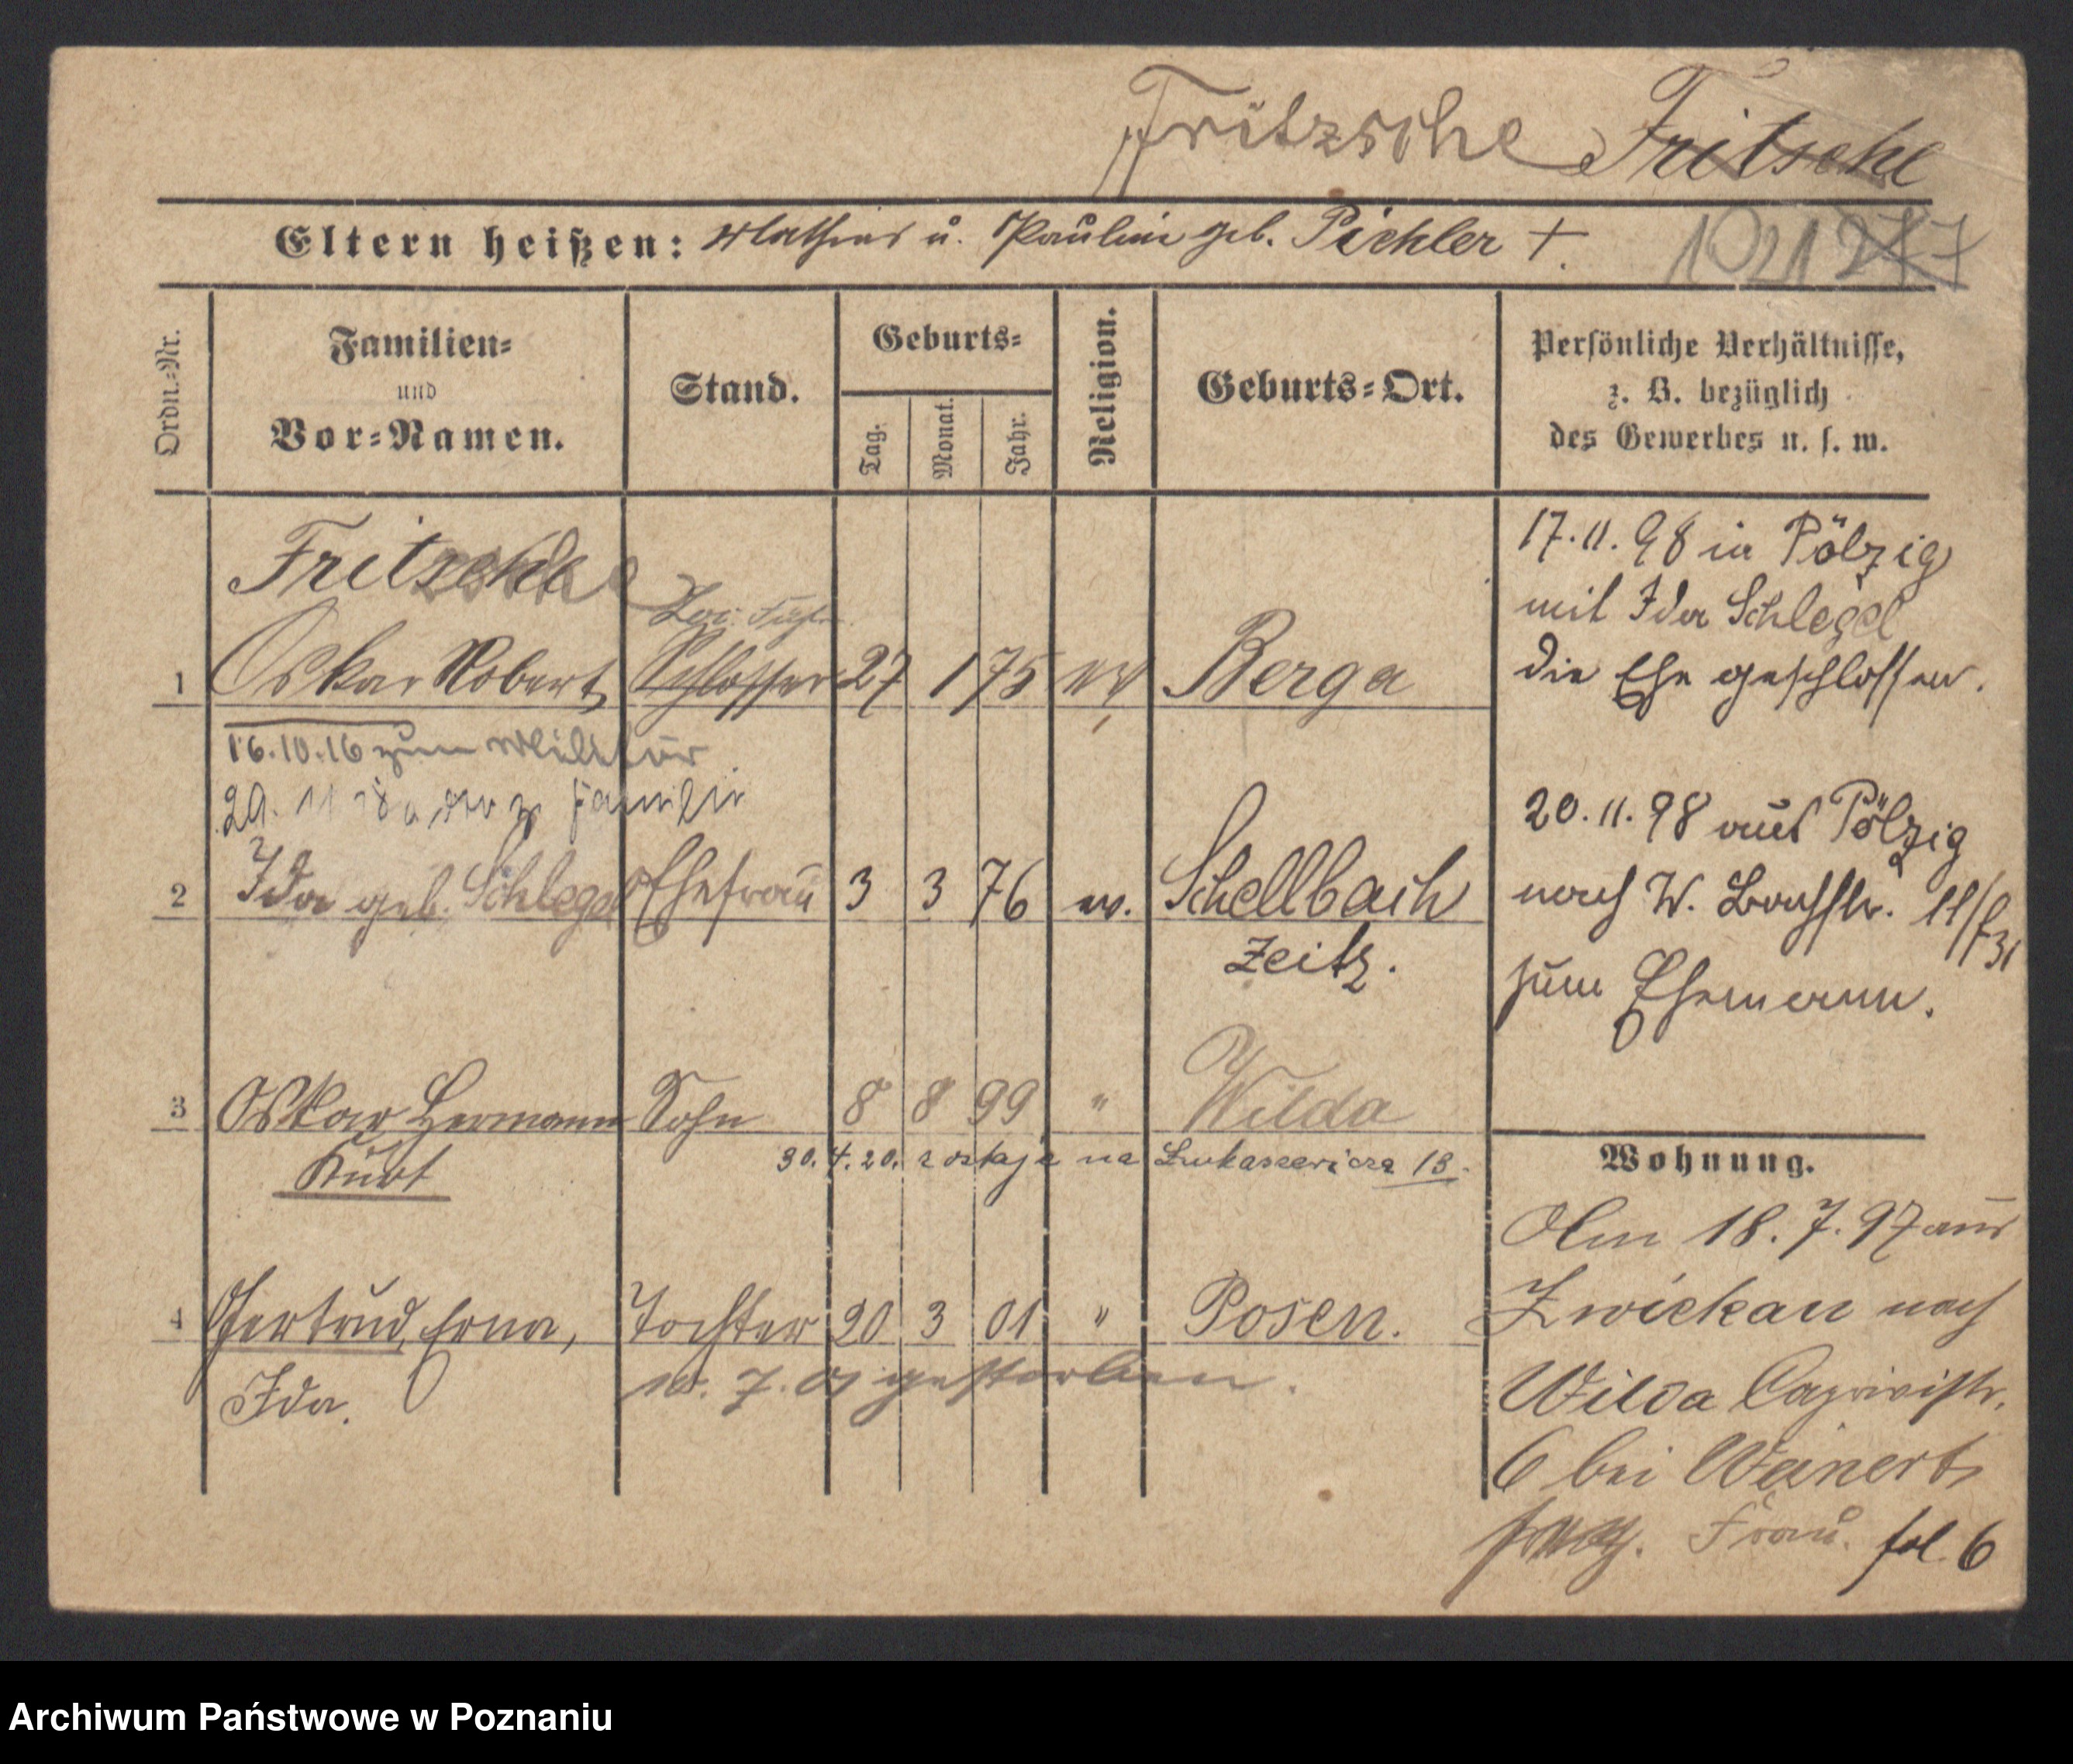 Fritzsche Fritsche
Eltern heißen: Mathias u. Pauline geb. Pichler +.
1021 277
Ordn.-Nr.
Familien-
und
Vor-Namen.
Stand.
Geburts-
Tag.
Monat.
Jahr.
Religion.
Geburts-Ort.
Persönliche Verhältnisse,
z. B. bezüglich
des Gewerbes u. s. w.
Fritzsche
1 Oskar Robert Schlosser 27 1 75 ev Berga
17.11.98 in Pölzig
mit Ida Schlegel
die Ehe geschlossen.
16.10.16 zum Militär
29. 11 18 Familie
2 Ida geb. Schlegel Ehefrau 3 3 76 ev. Schellbach
Zeitz.
20.11.98 aus Pölzig
nach W. Bachstr. 11/f31
zum Ehemann.
3 Oskar Hermann Sohn 8 8 99 " Wilda
Kurt
30.4.20. zostaje na Lukaszewicza 13.
4 Gertrud, Erna, Tochter 20 3 01 " Posen.
Ida.
7. 01 gestorben.
Wohnung.
Am 18.7.97 aus
Zwickau nach
Wilda Caprivistr.
6 bei Weinert
Frau. fol. 6
Archiwum Państwowe w Poznaniu